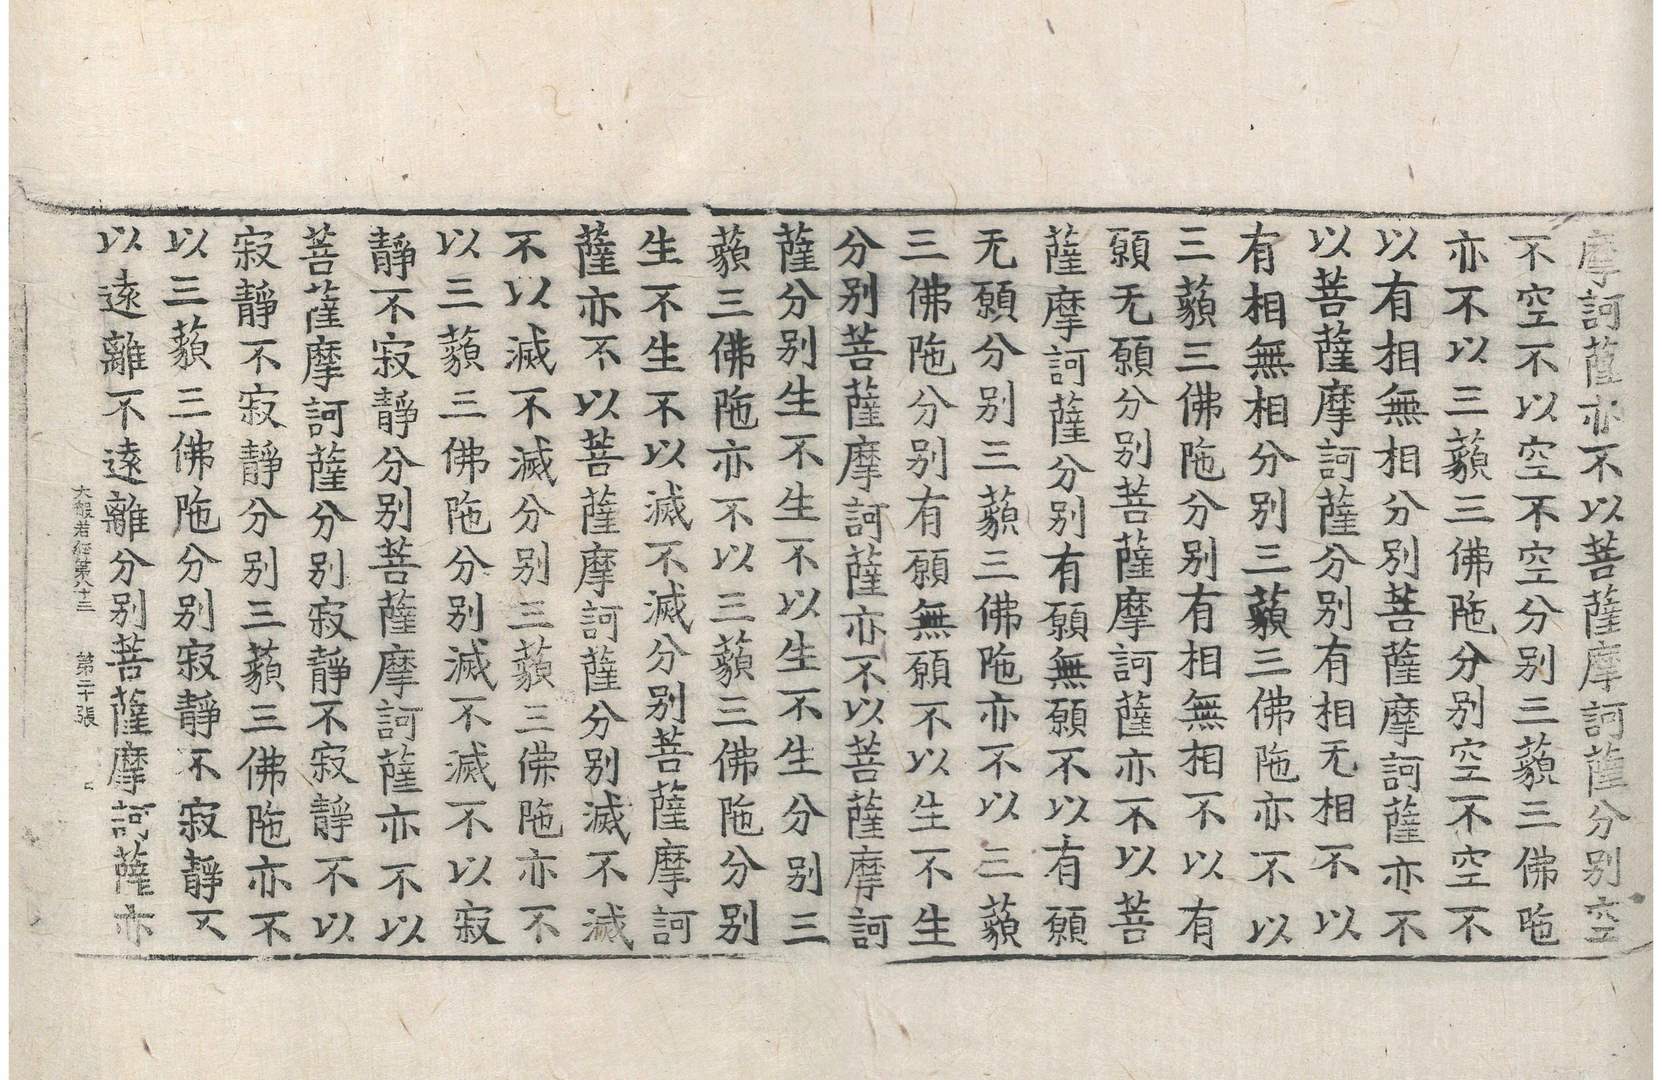 摩訶薩亦不以菩薩摩訶薩分别空
不空不以空不空分别三藐三佛陁
亦不以三藐三佛陁分别空不空不
以有相無相分别菩薩摩訶薩亦不
以菩薩摩訶薩分别有相无相不以
有相無相分别三藐三佛陁亦不以
三藐三佛陁分别有相無相不以有
願无願分别菩薩摩訶薩亦不以菩
薩摩訶薩分别有願無願不以有願
无願分别三藐三佛陁亦不以三藐
三佛陁分别有願無願不以生不生
分别菩薩摩訶薩亦不以菩薩摩訶
薩分别生不生不以生不生分别三
藐三佛陁亦不以三藐三佛陁分别
生不生不以滅不滅分别菩薩摩訶
薩亦不以菩薩摩訶薩分别滅不滅
不以滅不滅分别三藐三佛陁亦不
以三藐三佛陁分别滅不滅不以寂
靜不寂靜分别菩薩摩訶薩亦不以
菩薩摩訶薩分别寂靜不寂靜不以
寂靜不寂靜分别三藐三佛陁亦不
以三藐三佛陁分别寂靜不寂靜不
以逺離不逺離分别菩薩摩訶薩亦
大般若經第八十三 第二十張